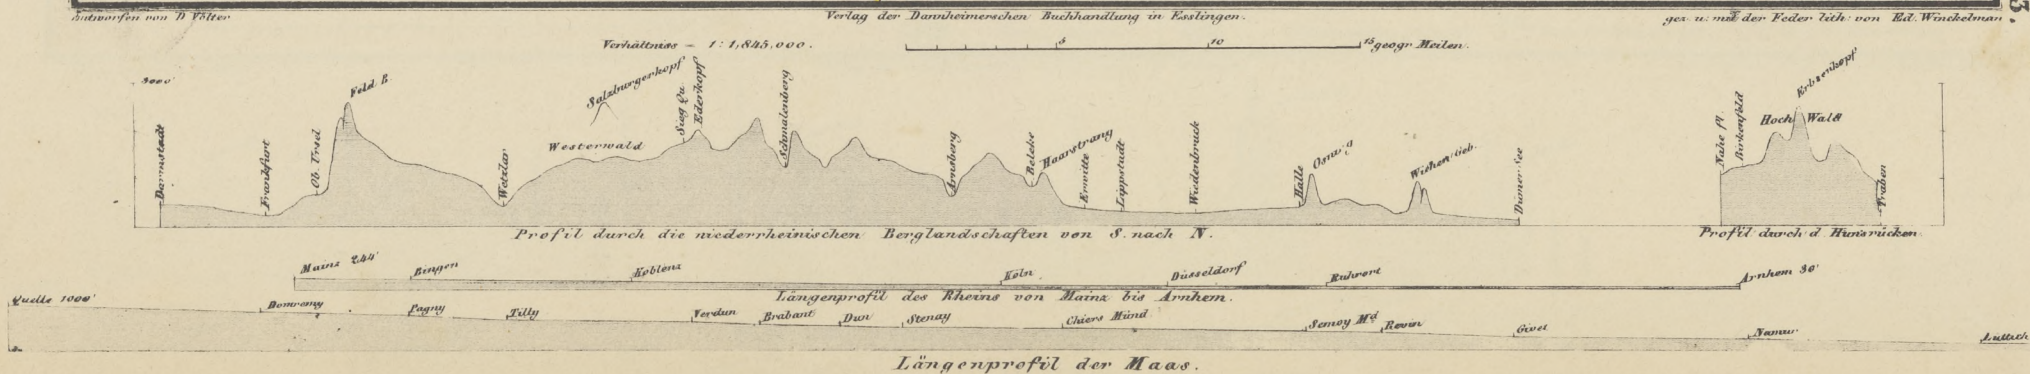 Entworfen von D Völter
Verlag der Dannheimerschen Buchhandlung in Esslingen.
gez. u. mit der Feder lith: von Ed. Winckelman
3.
Verhältniss = 1:1,845,000.
5 10 15 geogr Meilen.
3000'
Darmstadt
Frankfurt
Ob. Ursel
Feld B.
Wetzlar
Westerwald
Salzburgerkopf
Sieg Qu.
Ederkopf
Schmalenberg
Arnsberg
Beleke
Haarstrang
Erwitte
Lippstadt
Wiedenbruck
Halle
Osning
Wiehen Geb.
Dumer See
Nahe fl.
Birkenfeld
Hoch Wald
Erbsenkopf
Traben
Profil durch die niederrheinischen Berglandschaften von S. nach N.
Profil durch d Hunsrücken
Mainz 244' Bingen Koblenz Köln Düsseldorf Ruhrort Arnhem 30'
Längenprofil des Rheins von Mainz bis Arnhem.
Quelle 1000' Domremy Pagny Tilly Verdun Brabant Dun Stenay Chiers Münd Semoy Md Revin Givet Namur Luttich
Längenprofil der Maas.